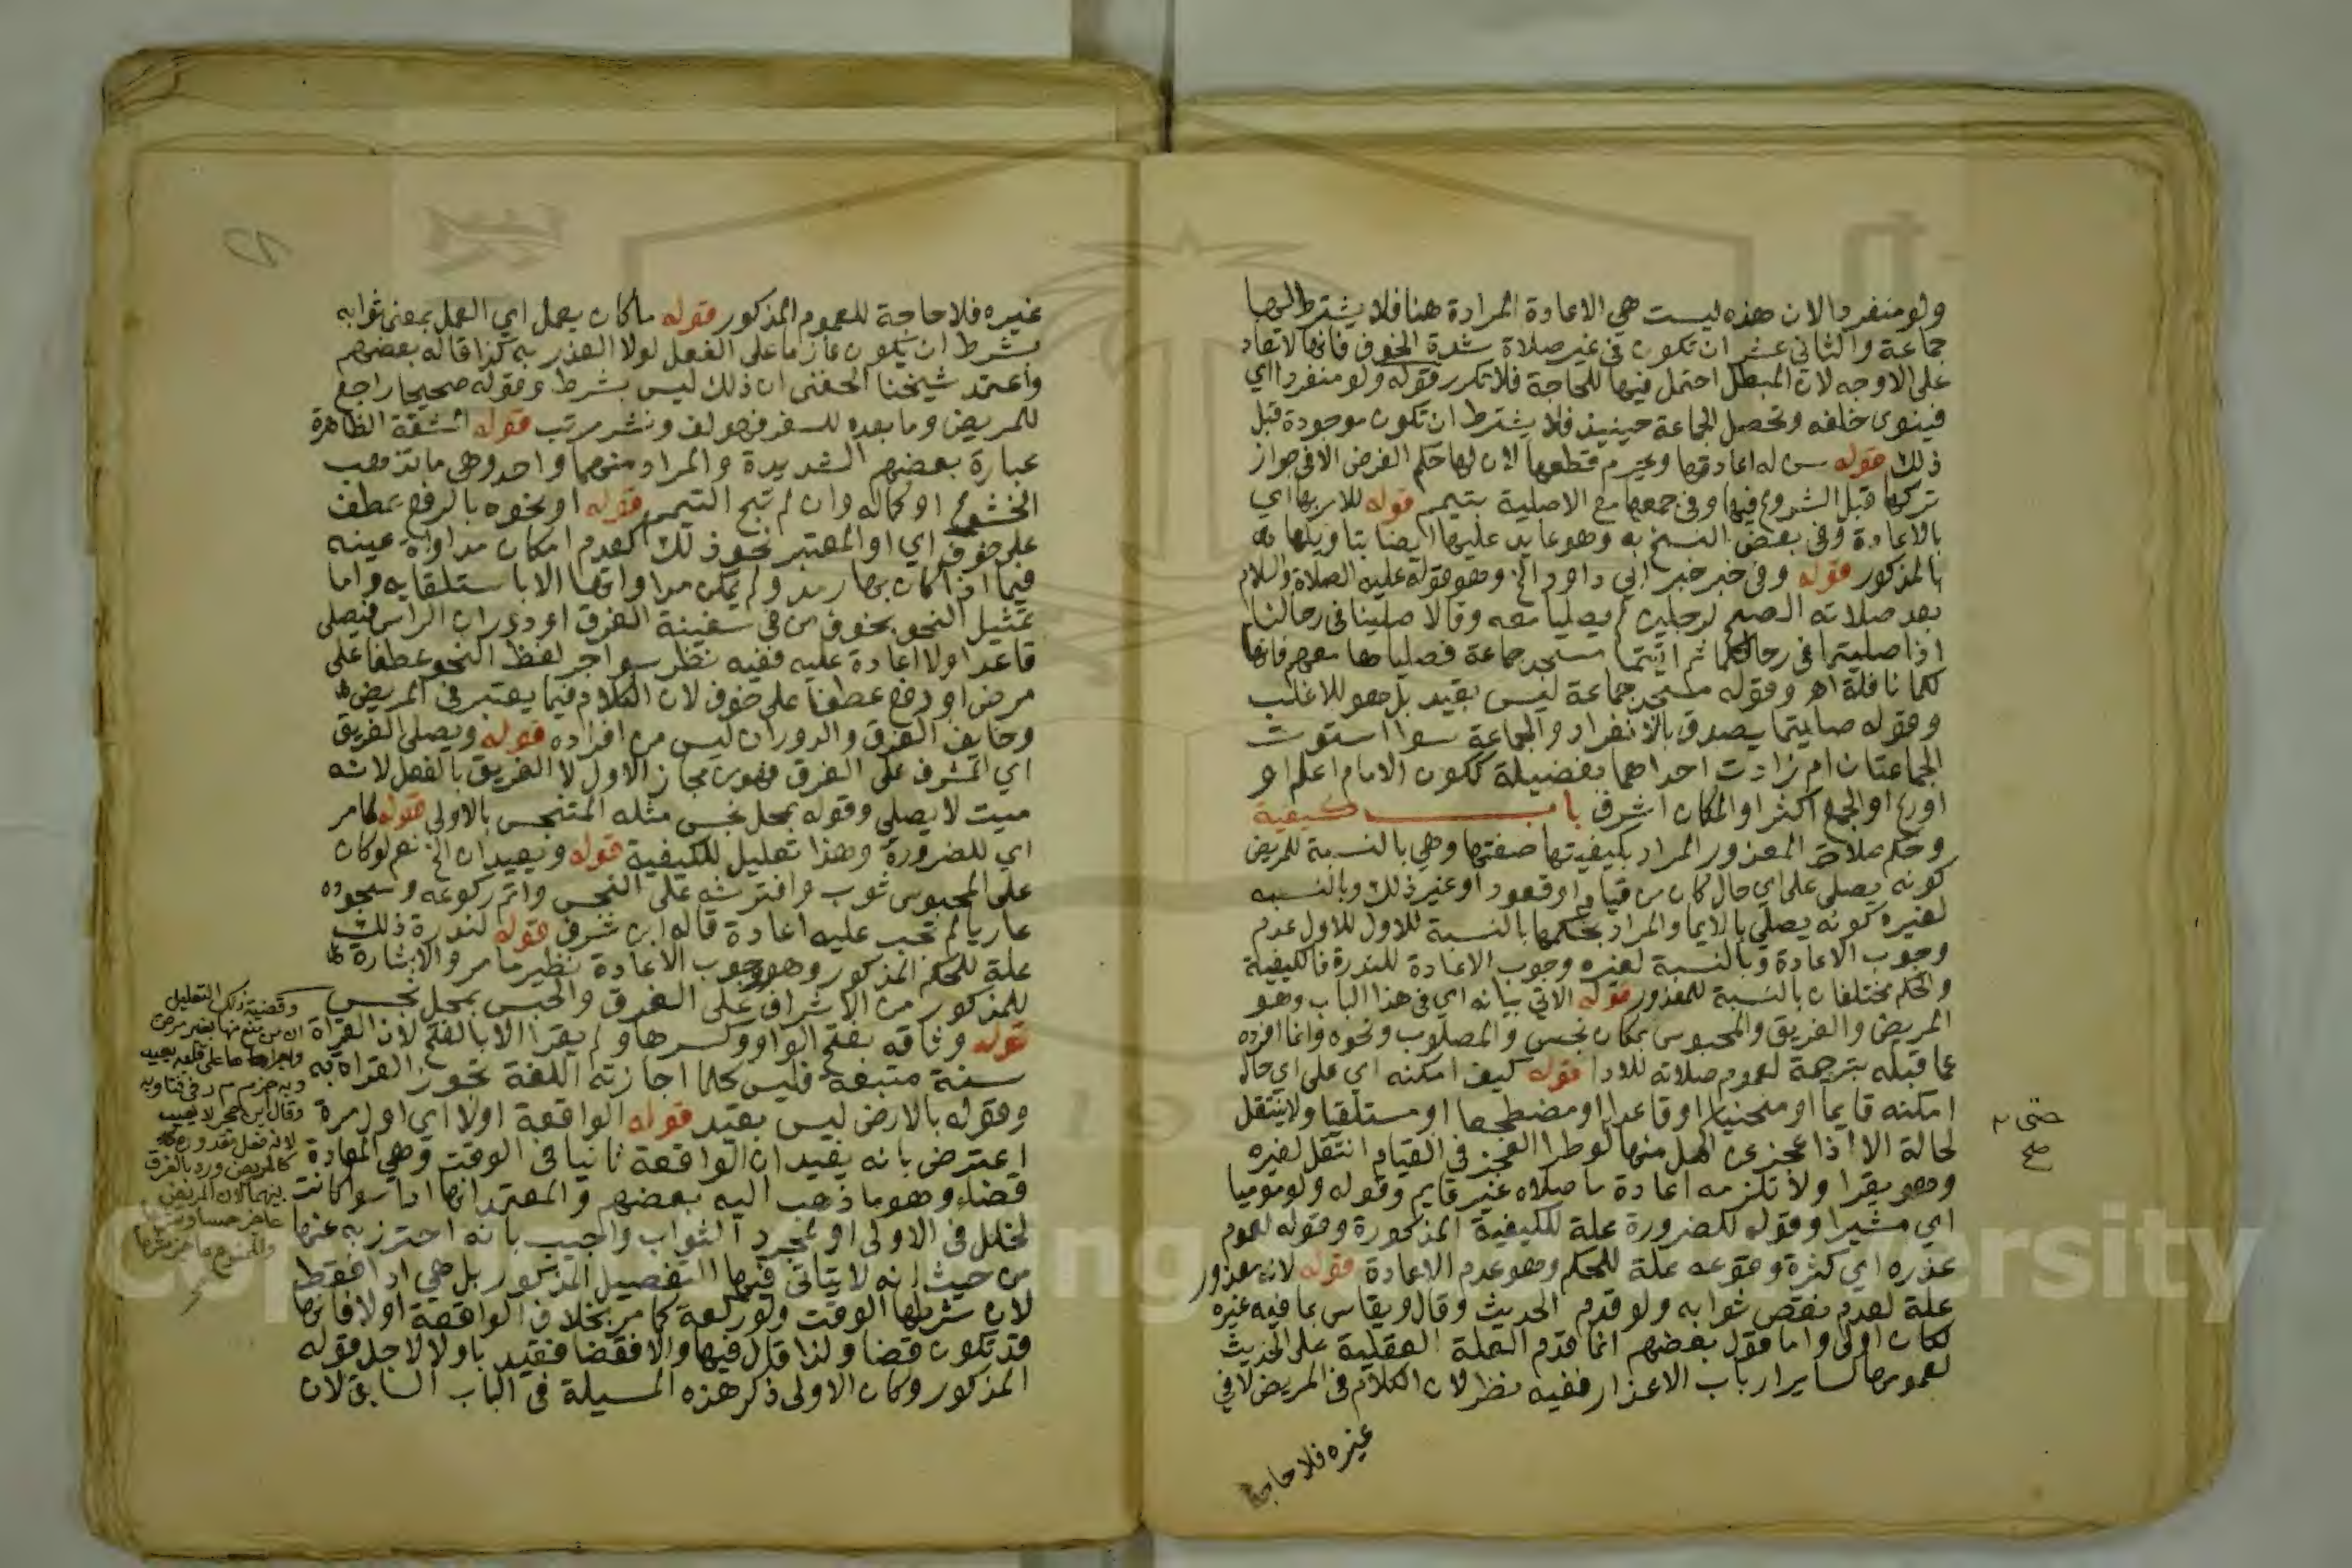 ولو منفردا لان هذه ليست هي الاعادة المرادة هنا فلا يشترط لها
جماعة والثاني عشر ان تكون في غير صلاة شدة الخوف فانها لا تعاد
على الاوجه لان المبطل احتمل فيها للحاجة فلا تكرر قوله ولو منفردا اي
فينوي خلفه وتحصل الجماعة حينيذ فلا يشترط ان تكون موجودة قبل
ذلك قوله سن له اعادتها ويحرم قطعها لان لها حكم الفرض الا في جواز
تركها قبل الشروع فيها وفي جمعها مع الاصلية بتيمم قوله للامر بها اي
بالاعادة وفي بعض النسخ به وهو عايد عليها ايضا بتاويلها
بالمذكور قوله وفي خبر خبر ابي داود الخ وهو قوله عليه الصلاة والسلام
بعد صلاته الصبح لرجلين لم يصليا معه وقالا صلينا في رحالنا
اذا صليتما في رحالكما ثم اتيتما مسجد جماعة فصلياها معهم فانها
لكما نافلة اهر وقوله مسجد جماعة ليس بقيد بل هو للاغلب
وقوله صليتما يصدق بالانفراد والجماعة سوا استوت
الجماعتان ام زادت احداهما بفضيلة ككون الامام اعلم او
اورع او الجمع اكثر او المكان اشرف باب كيفية
وحكم صلاة المعذور المراد بكيفيتها صفتها وهي بالنسبة للمريض
كونه يصلي على اي حال كان من قيام او قعود او غير ذلك وبالنسبه
لغيره كونه يصلي بالايما والمراد بحكمها بالنسبة للاول للاول عدم
وجوب الاعادة وبالنسبة لغيره وجوب الاعادة للندرة فالكيفية
والحكم مختلفان بالنسبة للمعذور قوله الاتي بيانه اي في هذا الباب وهو
المريض والغريق والمحبوس بمكان نجس والمصلوب ونحوه وانما افرده
عما قبله بترجمة لعموم صلاته للادا قوله كيف امكنه اي على اي حال
امكنه قايما او منحنيا او قاعدا او مضطجعا او مستلقيا ولا ينتقل
لحالة الا اذا عجز عن اكمل منها لوطرا العجز في القيام انتقل لغيره
وهو يقرا ولا تلزمه اعادة ما صلاه غير قايم وقوله ولو موميا
اي مشيرا وقوله للضرورة علة للكيفية المذكورة وقوله لعموم
عذره اي كثرة وقوعه علة للحكم وهو عدم الاعادة قوله لانه معذور
علة لعدم نقص ثوابه ولو قدم الحديث وقال ويقاس بما فيه غيره
لكان اولى واما قول بعضهم انما قدم العلة العقلية على الحديث
لعمومها لساير ارباب الاعذار ففيه نظر لان الكلام في المريض لا في
غيره فلا حاجة
حتى
صح
غيره فلا حاجة للعموم المذكور قوله ما كان يعمل اي العمل بمعنى ثوابه
بشرط ان يكون عازما على الفعل لولا العذر به كذا قاله بعضهم
واعتمد شيخنا الحفني ان ذلك ليس بشرط وقوله صحيحا راجع
للمريض وما بعده للسفر فهو لف ونشر مرتب قوله المشقة الظاهرة
عبارة بعضهم الشديدة والمراد منهما واحد وهي ما تذهب
الخشوع او كماله وان لم تبح التيمم قوله او نحوه بالرفع عطف
على خوف اي او المعتبر نحو ذلك كعدم امكان مداواة عينه
فيما اذا كان بها رمد ولم يمكن مداواتها الا باستلقايه واما
تمثيل النحو بخوف من في سفينة الغرق او دوران الراس فيصلي
قاعدا ولا اعادة عليه ففيه نظر سوا جر لفظ النحو عطفا على
مرض او رفع عطفا على خوف لان الكلام فيما يعتبر في المريض
وخايف الغرق والدوران ليس من افراده قوله ويصلي الغريق
اي المشرف على الغرق فهو من مجاز الاول لا الغريق بالفعل لانه
ميت لا يصلي وقوله بمحل نجس مثله المتنجس بالاولى قوله كما مر
اي للضرورة وهذا تعليل للكيفية قوله ويعيدان الخ نعم لو كان
على المحبوس ثوب وافترشه على النجس واتم ركوعه وسجوده
عاريا لم تجب عليه اعادة قاله ابن شرف قوله لندرة ذلك
علة للحكم المذكور وهو وجوب الاعادة نظير ما مر والاشارة
للمذكور من الاشراف على الغرق والحبس بمحل نجس
قوله وثاقه بفتح الواو وكسرها ولم يقرا الا بالفتح لان القراة
سنة متبعة فليس كلما اجازته اللغة تجوز القراة به
وقوله بالارض ليس بقيد قوله الواقعة اولا اي اول مرة
اعترض بانه يفيد ان الواقعة ثانيا في الوقت وهي المعادة
قضاء وهو ما ذهب اليه بعضهم والمعتمد انها ادا سوا كانت
لخلل في الاولى او لمجرد الثواب واجيب بانه احترز به عنها
من حيث انه لا يتاتى فيها التفصيل المذكور بل هي ادا فقط
لان شرطها الوقت ولو ركعة كما مر بخلاف الواقعة اولا فانها
قد تكون قضا ولذا قال فيها والا فقضا فقيد باولا لاجل قوله
المذكور وكان الاولى ذكر هذه المسيلة في الباب السابق لان
وقضية ذلك التعليل
ان من منع منها بغير مرض
واجراها على قلبه يعيد
وبه جزم م ر في فتاويه
وقال ابن حجر لا يعيب
كالمريض ورد بالفرق
بينهما لان المريض
Copyright © King Saud University
1957